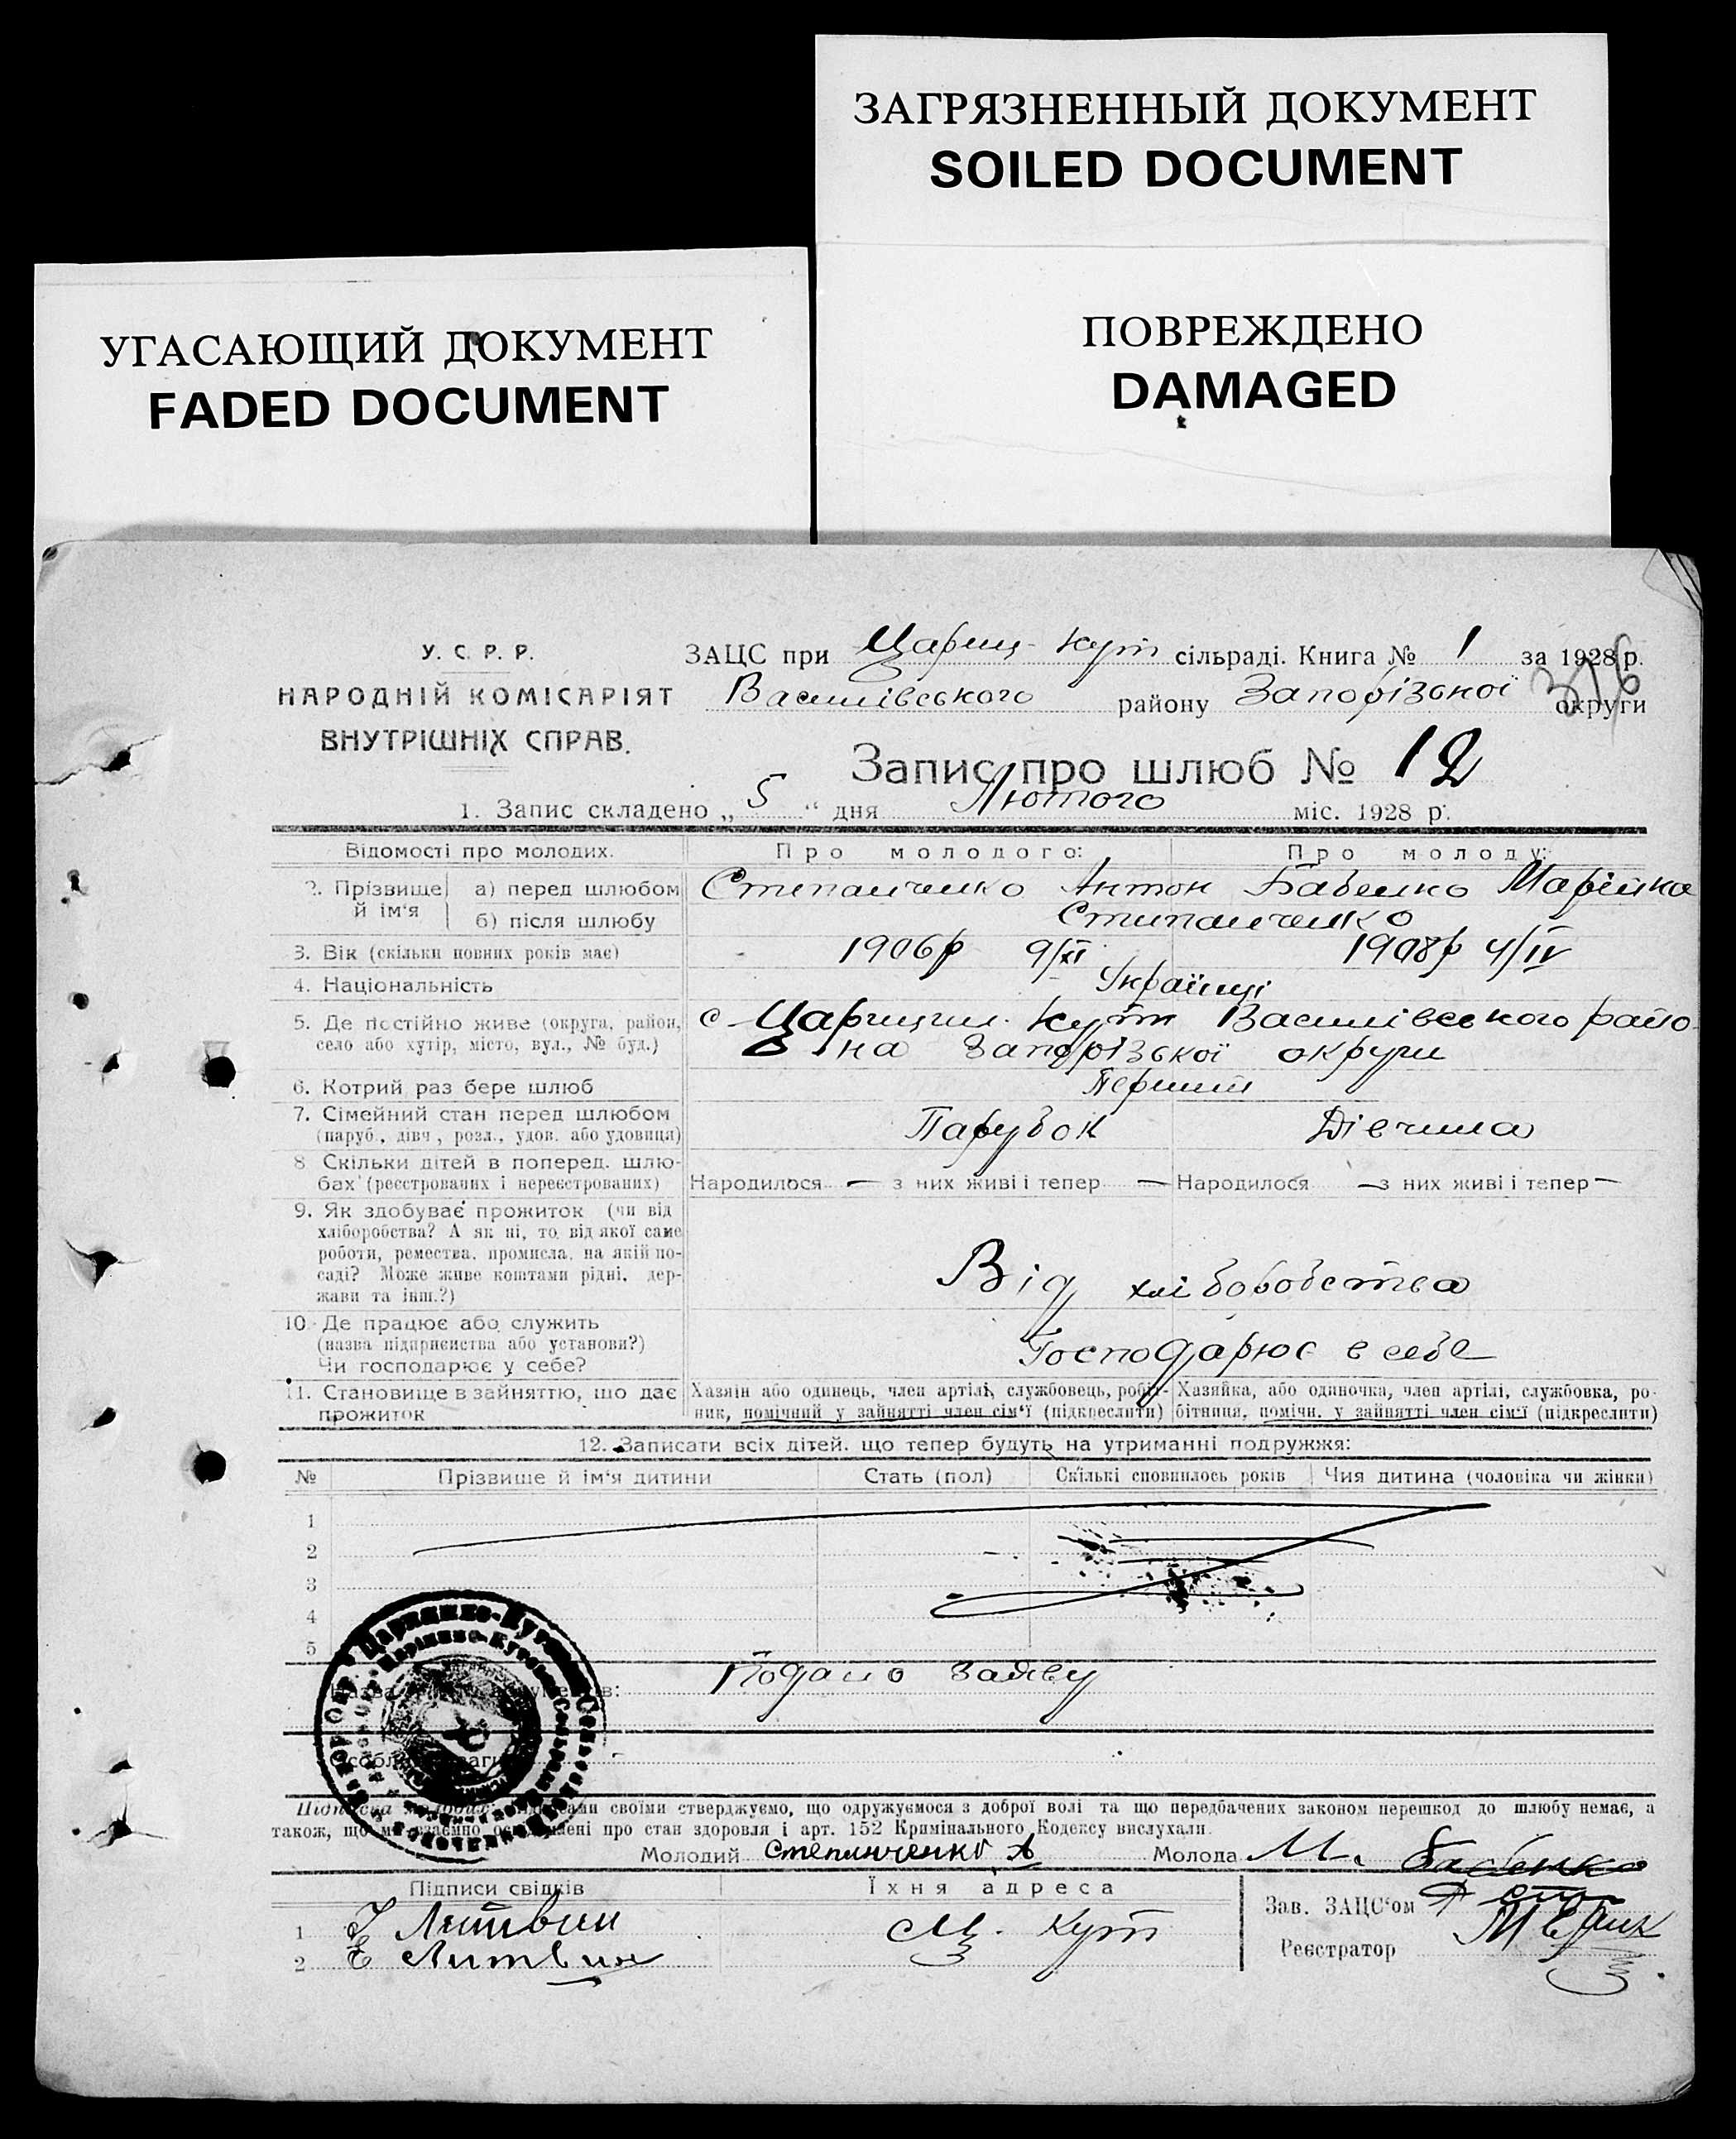 ЗАГРЯЗНЕННЫЙ ДОКУМЕНТ
SOILED DOCUMENT
УГАСАЮЩИЙ ДОКУМЕНТ
FADED DOCUMENT
ПОВРЕЖДЕНО
DAMAGED
У. С. Р. Р.
НАРОДНІЙ КОМІСАРІЯТ
ВНУТРІШНІХ СПРАВ.
ЗАЦС при Цариц-Кут сільраді. Книга № 1 за 1928 р.
316
Василівського району Запорізької округи
Запис про шлюб № 12
1. Запис складено „ 5 “ дня Лютого міс. 1928 р.
Відомості про молодих. Про молодого: Про молоду:
2. Прізвище й ім‘я а) перед шлюбом Степанченко Антон Бабенко Марійка
б) після шлюбу Степанченко
3. Вік (скільки повних років має) 1906р 9/XI 1908р 4/IV
4. Національність Українці
5. Де постійно живе (округа, район, село або хутір, місто, вул., № буд.) с Царицин. Кут Василівського райо-
на Запорізької округи
6. Котрий раз бере шлюб Перший
7. Сімейний стан перед шлюбом Парубок Дівчина
(паруб., дівч., розл., удов. або удовиця)
8. Скільки дітей в поперед. шлю-
бах (реєстрованих і нереєстрованих) Народилося — з них живі і тепер — Народилося — з них живі і тепер —
9. Як здобуває прожиток (чи від
хліборобства? А як ні, то від якої саме
роботи, ремества, промисла, на якій по-
саді? Може живе коштами рідні, дер-
жави та інш.?) Від хліборобства
10. Де працює або служить
(назва підприємства або установи?)
Чи господарює у себе? Господарює в себе
11. Становище в зайняттю, що дає Хазяїн або одинець, член артілі, службовець, робіт- Хазяйка, або одиночка, член артілі, службовка, ро-
прожиток ник, помічний у зайнятті член сім‘ї (підкреслити) бітниця, помічн. у зайнятті член сім‘ї (підкреслити)
12. Записати всіх дітей, що тепер будуть на утриманні подружжя:
№ Прізвище й ім‘я дитини Стать (пол) Скількі сповнилось років Чия дитина (чоловіка чи жінки)
1
2
3
4
5
Подано заяву
своїми стверджуємо, що одружуємося з доброї волі та що передбачених законом перешкод до шлюбу немає, а
також, що ми взаємно освідомлені про стан здоровля і арт. 152 Кримінального Кодексу вислухали.
Молодий Степанченко А Молода М. Бабенко
Підписи свідків Їхня адреса
Зав. ЗАЦС‘ом
1 Литвин с Ц. Кут
Реєстратор
2 Е Литвин